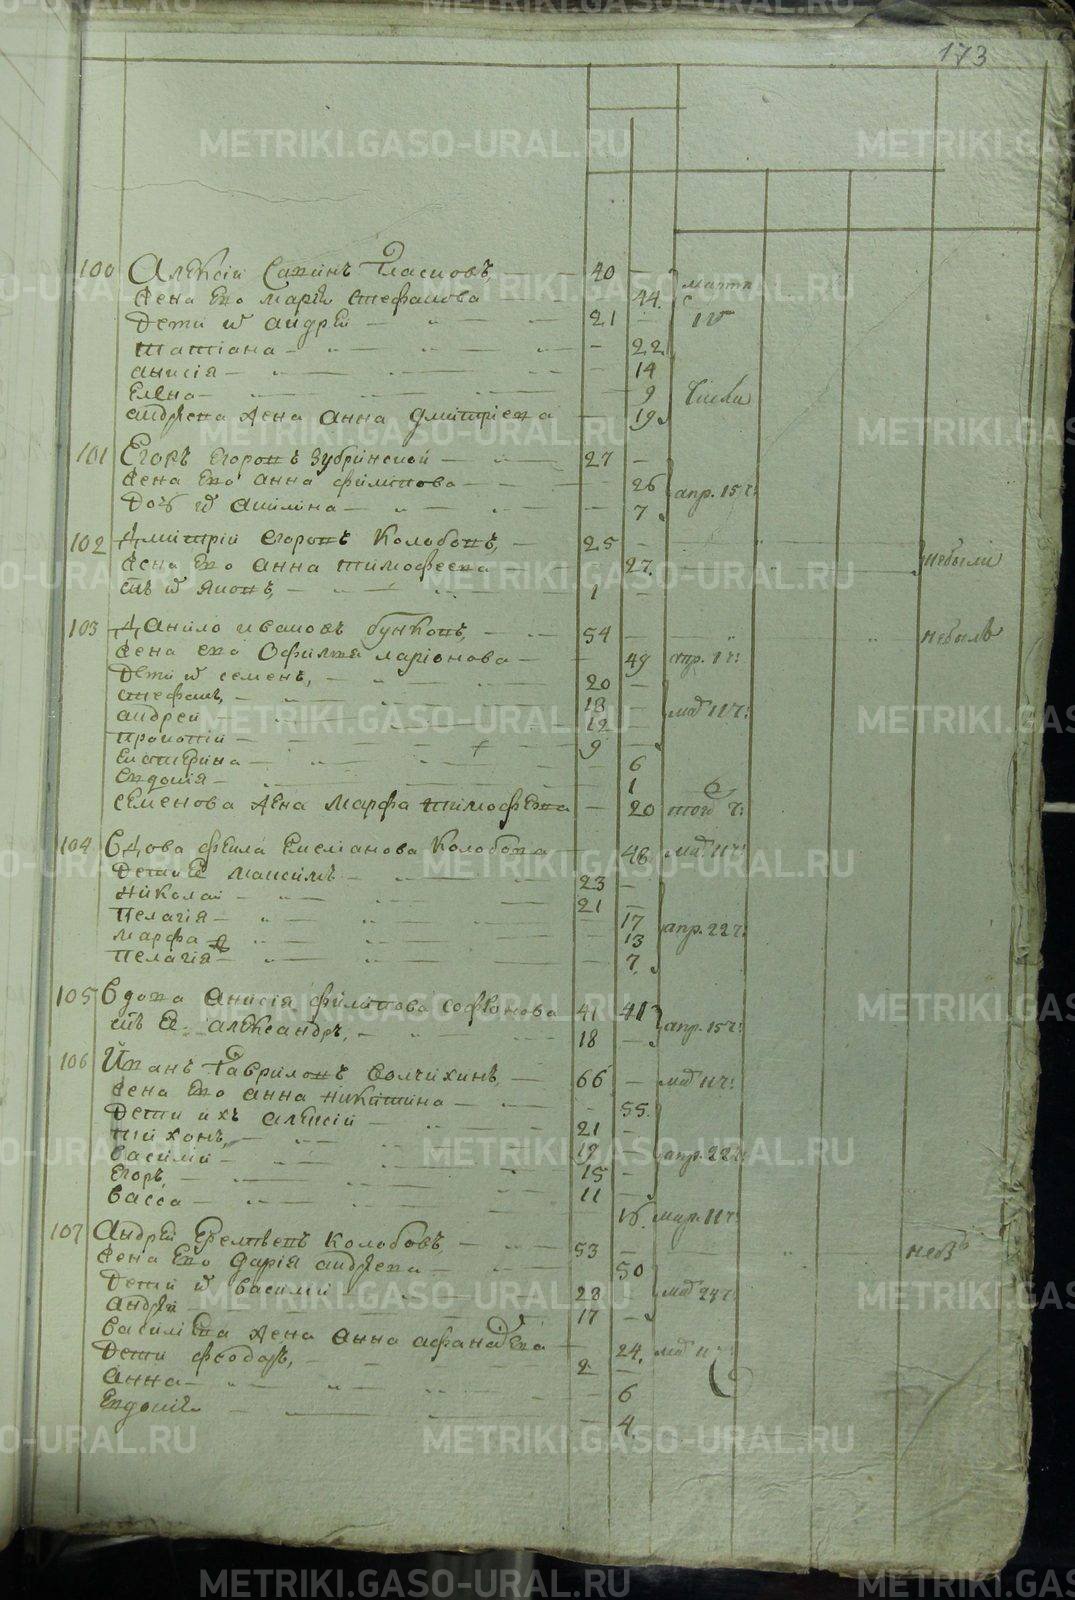 173
100 Алексѣй Савинъ Власиовъ 40
жена Ево Марія Стефанова 44 марта
Дети их Андрей 21 10
Татіана 22
анисія 14
Елена 9 числа
андреева жена Анна Дмитриева 19
101 Егоръ Егоровъ Зубринской 27
жена Ево Анна филипова 26 апр. 15 ч:
Дочь их Акилина 7
102 Дмитрій Егоровъ Колобовъ 25
жена Ево Анна тимофеева 27 небыли
сынъ их яковъ 1
103 Данило Ивановъ бунковъ 54 небылъ
жена ево Офимия ларіонова 49 апр. 1 ч:
Дети их семенъ 20
стефанъ 18
андрей 12 мар 11 ч:
прокопій 9
Екатерина 6
Евдокія 1
семенова жена Марфа тимофеева 20 того ч:
104 Вдова фекла Емелианова Колобова 48 мар 11 ч:
Дети Ея Максимъ 23
Николай 21
Пелагія 17
Марфа 13 апр. 22 ч:
Пелагія 7
105 Вдова Анисія филипова софронова 41 41
сынъ Ея Александръ 18 апр. 15 ч:
106 Иванъ Гавриловъ Волчихинъ 66 мар 11 ч:
жена Ево Анна Никитина 55
Дети ихъ Алексій 21
тихонъ 19
Василий 15 апр. 22 ч:
Егоръ 11
Васса 16 мар. 11 ч:
107 Андрей Еремѣевъ Колобовъ 53 небъ
жена Ево Дарія андреева 50
Дети их Василий 28 мар 24 ч
Андрей 17
Василіева жена Анна афанасьева 24 мар 11 ч:
Дети феодоръ 2
Анна 6
Евдокия 4
METRIKI.GASO-URAL.RU